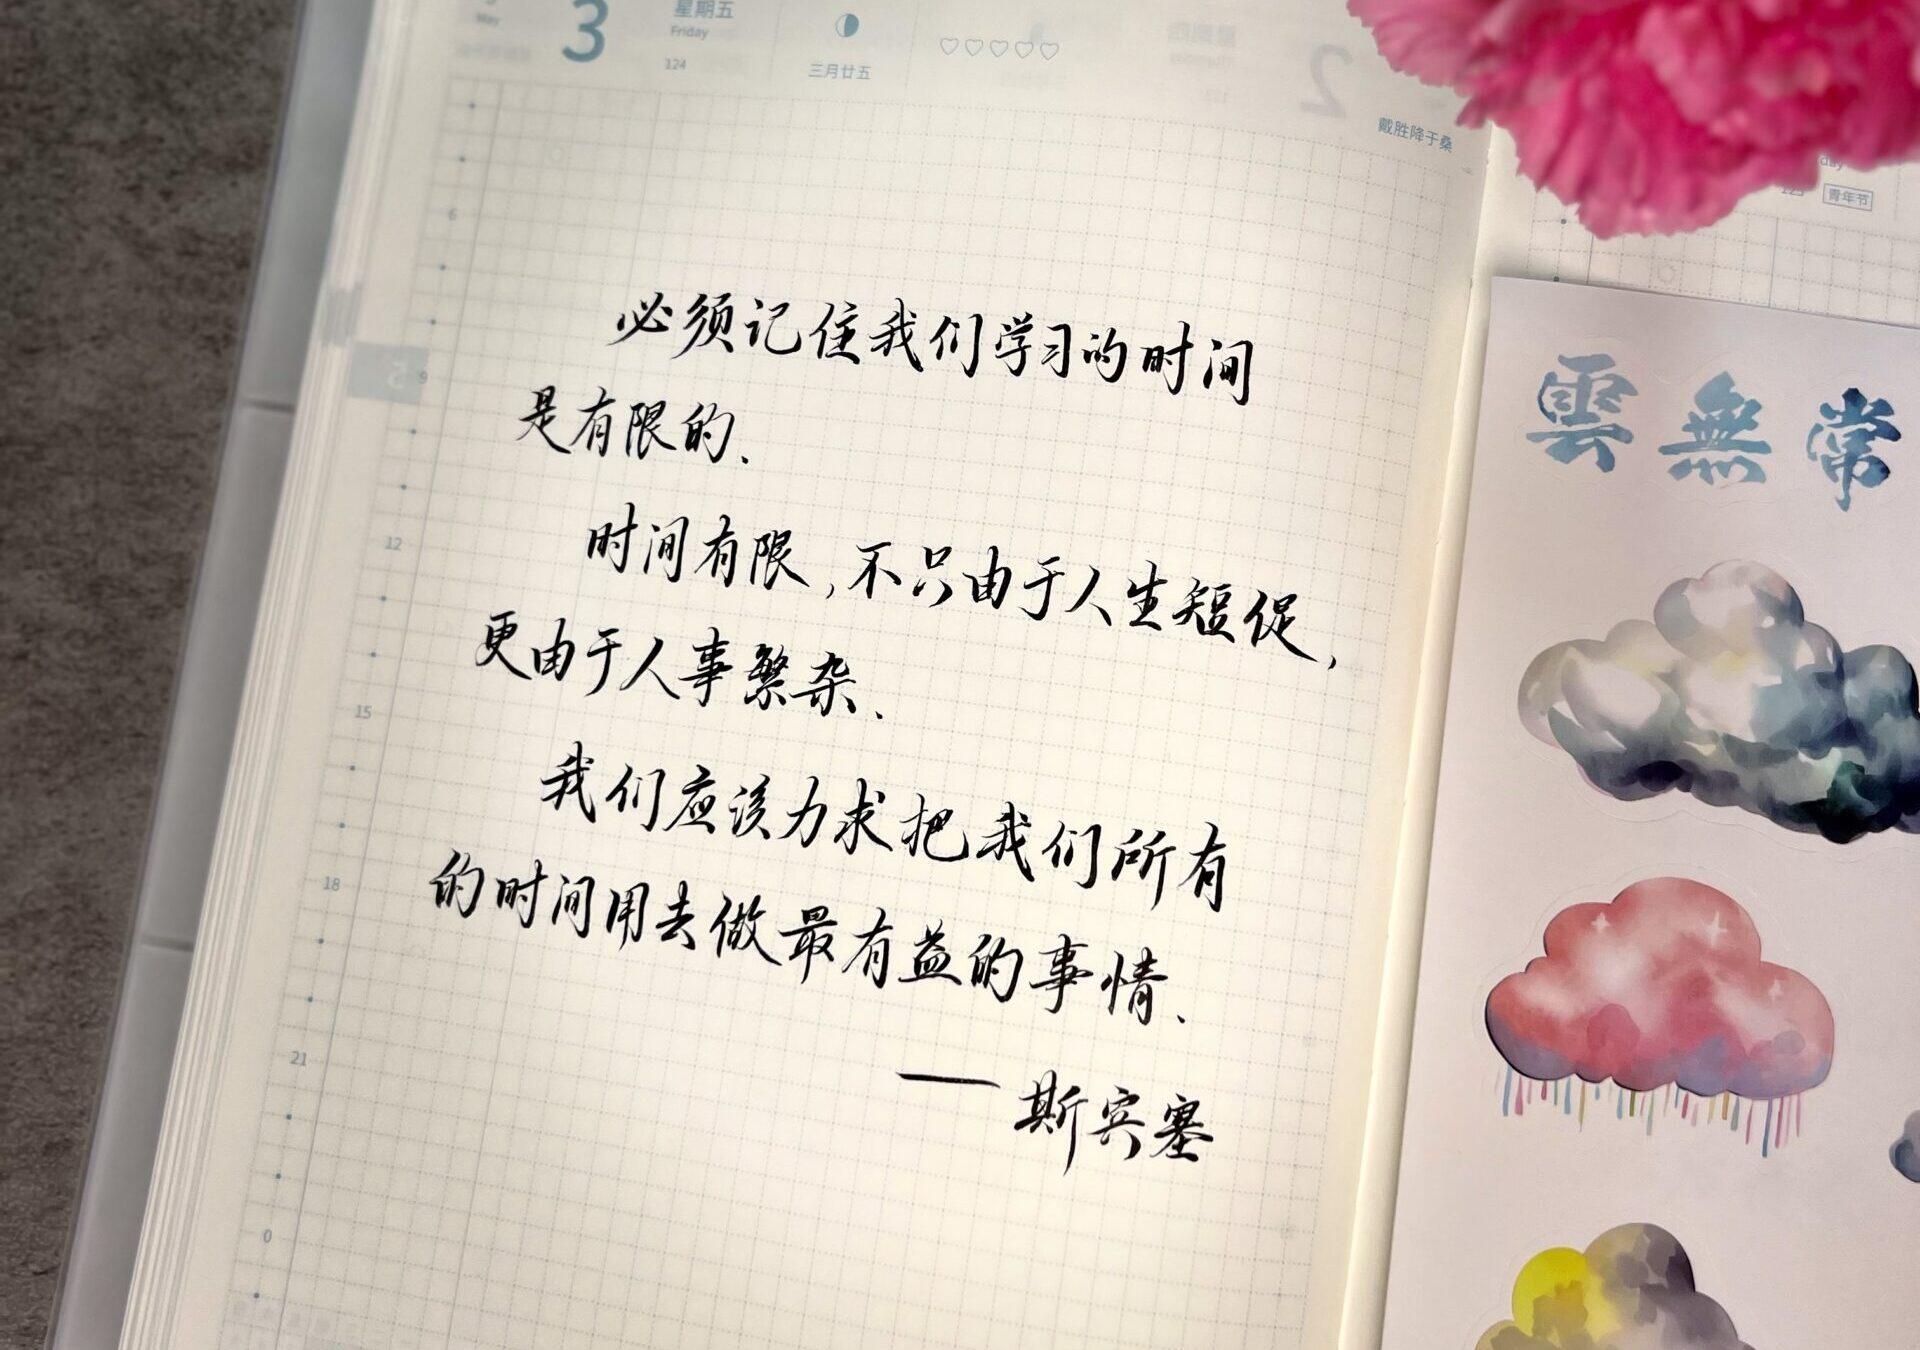 May
3
星期五
Friday
124
三月廿五
戴胜降于桑
青年节
6
9
12
15
18
21
0
必须记住我们学习的时间
是有限的.
时间有限,不只由于人生短促,
更由于人事繁杂.
我们应该力求把我们所有
的时间用去做最有益的事情.
——斯宾塞
雲無常